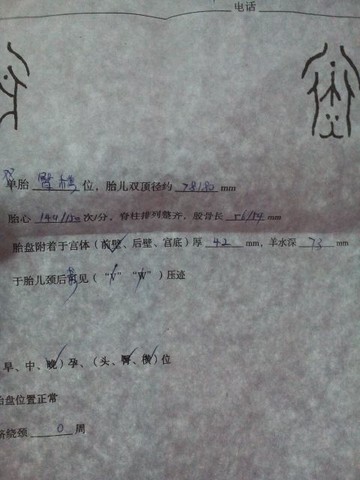 电话
双
单胎 臀横 位，胎儿双顶径约 78/80 mm
胎心 144/150 次/分，脊柱排列整齐，股骨长 56/54 mm
胎盘附着于宫体（前壁、后壁、宫底）厚 42 mm，羊水深 73 mm
于胎儿颈后部见（“V”“W”）压迹
早、中、晚）孕、（头、臀、横）位
胎盘位置正常
绕颈 0 周